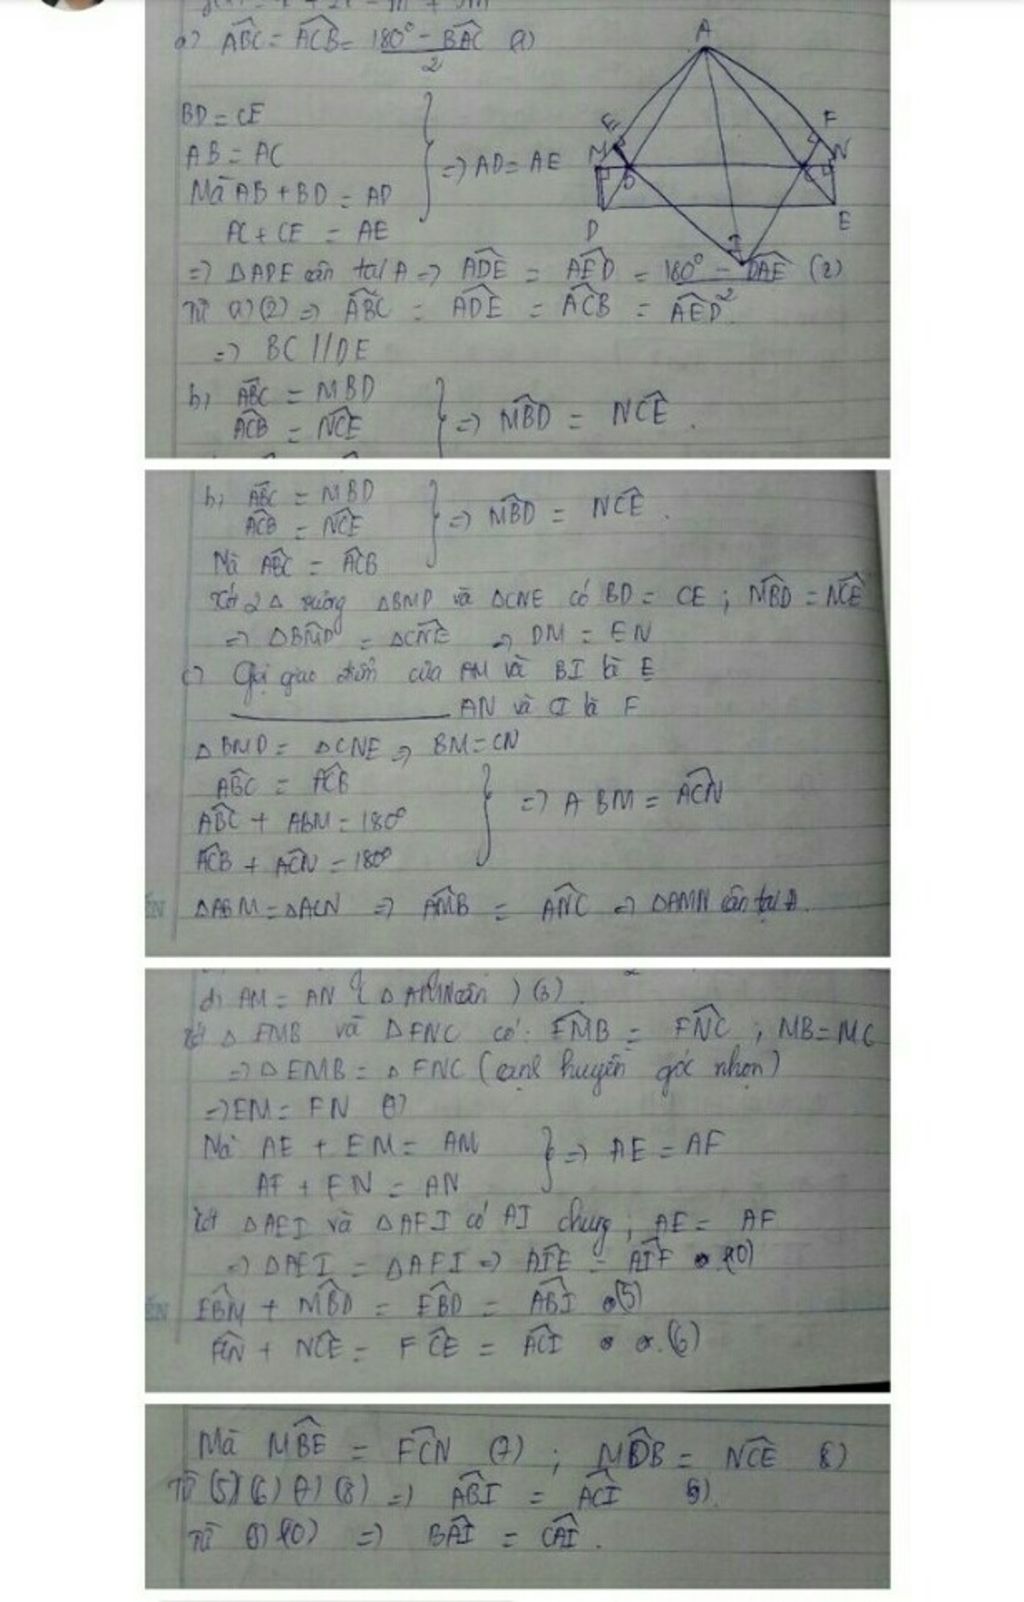 a) ABC^ = ACB^ = (180° - BAC^)/2 (1)
BD = CE
AB = AC
Mà AB + BD = AD
AC + CE = AE
} => AD = AE
=> △ADE cân tại A => ADE^ = AED^ = (180° - DAE^)/2 (2)
Từ (1)(2) => ABC^ = ADE^ = ACB^ = AED^
=> BC // DE
b, ABC^ = MBD
ACB^ = NCE^
} => MBD^ = NCE^.
A
E
F
M
N
B
C
D
E
I
b, ABC^ = MBD
ACB^ = NCE^
Mà ABC^ = ACB^
} => MBD^ = NCE^.
Xét 2 △ vuông △BMD và △CNE có BD = CE ; MBD^ = NCE^
=> △BMD = △CNE => DM = EN
c) Gọi giao điểm của AM và BI là E
AN và CI là F
△BMD = △CNE => BM = CN
ABC^ = ACB^
ABC^ + ABM = 180°
ACB^ + ACN^ = 180°
} => ABM = ACN^
△ABM = △ACN => AMB^ = ANC^ => △AMN cân tại A.
d) AM = AN ( △AMN cân ) (3)
Xét △ EMB và △ FNC có: EMB^ = FNC^ ; MB = MC
=> △ EMB = △ FNC (cạnh huyền góc nhọn)
=> EM = FN
Mà AE + EM = AM
AF + FN = AN
} => AE = AF
Xét △AEI và △AFI có AI chung ; AE = AF
=> △AEI = △AFI => AIE^ = AIF^ (10)
EBM^ + MBD^ = EBD^ = ABI^ (5)
FCN^ + NCE^ = FCE^ = ACI^ (6)
Mà MBE^ = FCN^ (7) ; MDB^ = NCE^ 8)
Từ (5)(6)(7)(8) => ABI^ = ACI^ 9)
Từ (9)(10) => BAI^ = CAI^.